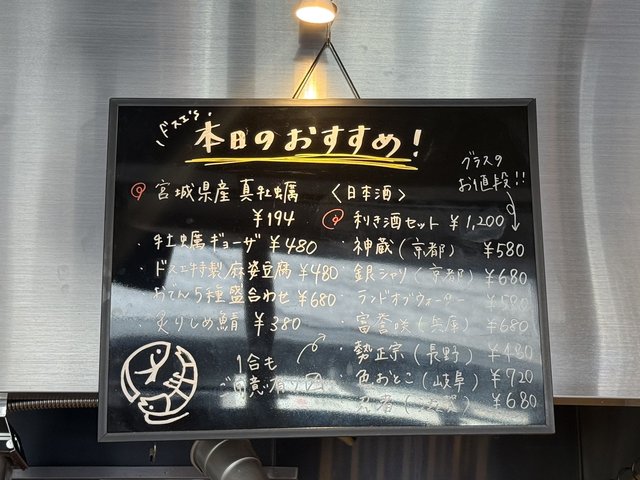 ドスエ's
本日のおすすめ!
宮城県産 真牡蠣
¥194
・牡蠣ギョーザ ¥480
・ドスエ特製麻婆豆腐 ¥480
・おでん5種盛合わせ ¥680
・炙りしめ鯖 ¥380
1合も
〈日本酒〉
グラスの
お値段!!
利き酒セット ¥1,200
・神蔵(京都) ¥580
・銀シャリ(京都) ¥680
・ランドオブウォーター ¥580
・富誉咲(兵庫) ¥680
・勢正宗(長野) ¥480
・色おとこ(岐阜) ¥720
¥680